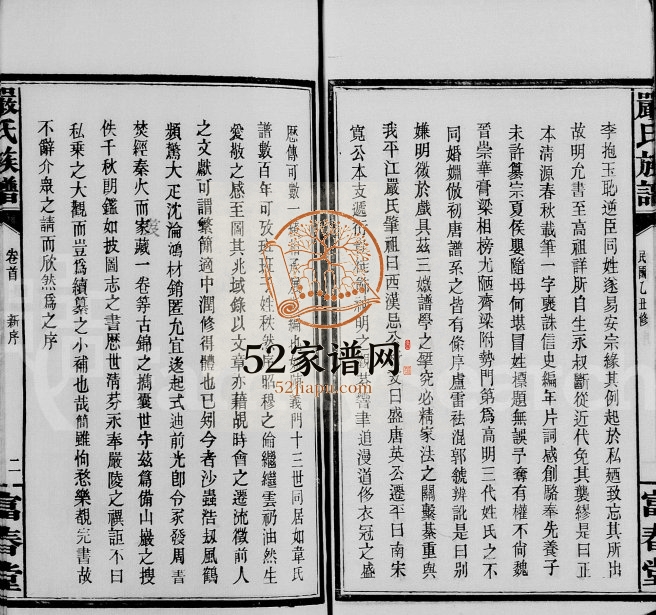 李抱玉恥逆臣同姓遂易安宗緣其例起於私廼致忘其所出
故明允書至高祖詳所自生永叔斷從近代免其襲繆是曰正
本清源春秋載筆一字褒誅信史編年片詞感創駱奉先養子
未許纂宗夏侯嬰隨母何堪冒姓標題無誤予奪有權不尙魏
晉崇華膏粱相榜尤陋齊梁附勢門第爲高明三代姓氏之不
同婚姻倣初唐譜系之皆有條序盧雷祛混郭虢辨訛是曰別
嫌明微於戲具茲三媺譜學之硏究必精家法之關繫綦重與
我平江嚴氏肇祖曰西漢忌公
曰盛唐英公遷平曰南宋
寬公本支遞衍
書追漫道侈衣冠之盛
歷傳可數一
義門十三世同居如韋氏
譜數百年可攷
姓秩然
昭穆之倫繼繼雲礽油然生
愛敬之感至圖其兆域錄以文章亦藉覘時會之遷流徵前人
之文獻可謂繁簡適中潤修得體也已矧今者沙蟲浩刼風鶴
頻驚大疋沈淪鴻材銷匿允宜逡起式迪前光卽令豕發周書
焚經秦火而家藏一卷等古錦之摛囊世守茲篇備山巖之搜
佚千秋朗鑑如披圖志之書歷世淸芬永奉嚴陵之禩詎不曰
私乘之大觀而豈爲續纂之小補也哉簡雖恂愁樂覩完書故
不辭介衆之請而欣然爲之序
嚴氏族譜
民國乙丑修
富春堂
嚴氏族譜
卷首
新序
二
富春堂
52家谱网
52jiapu.com